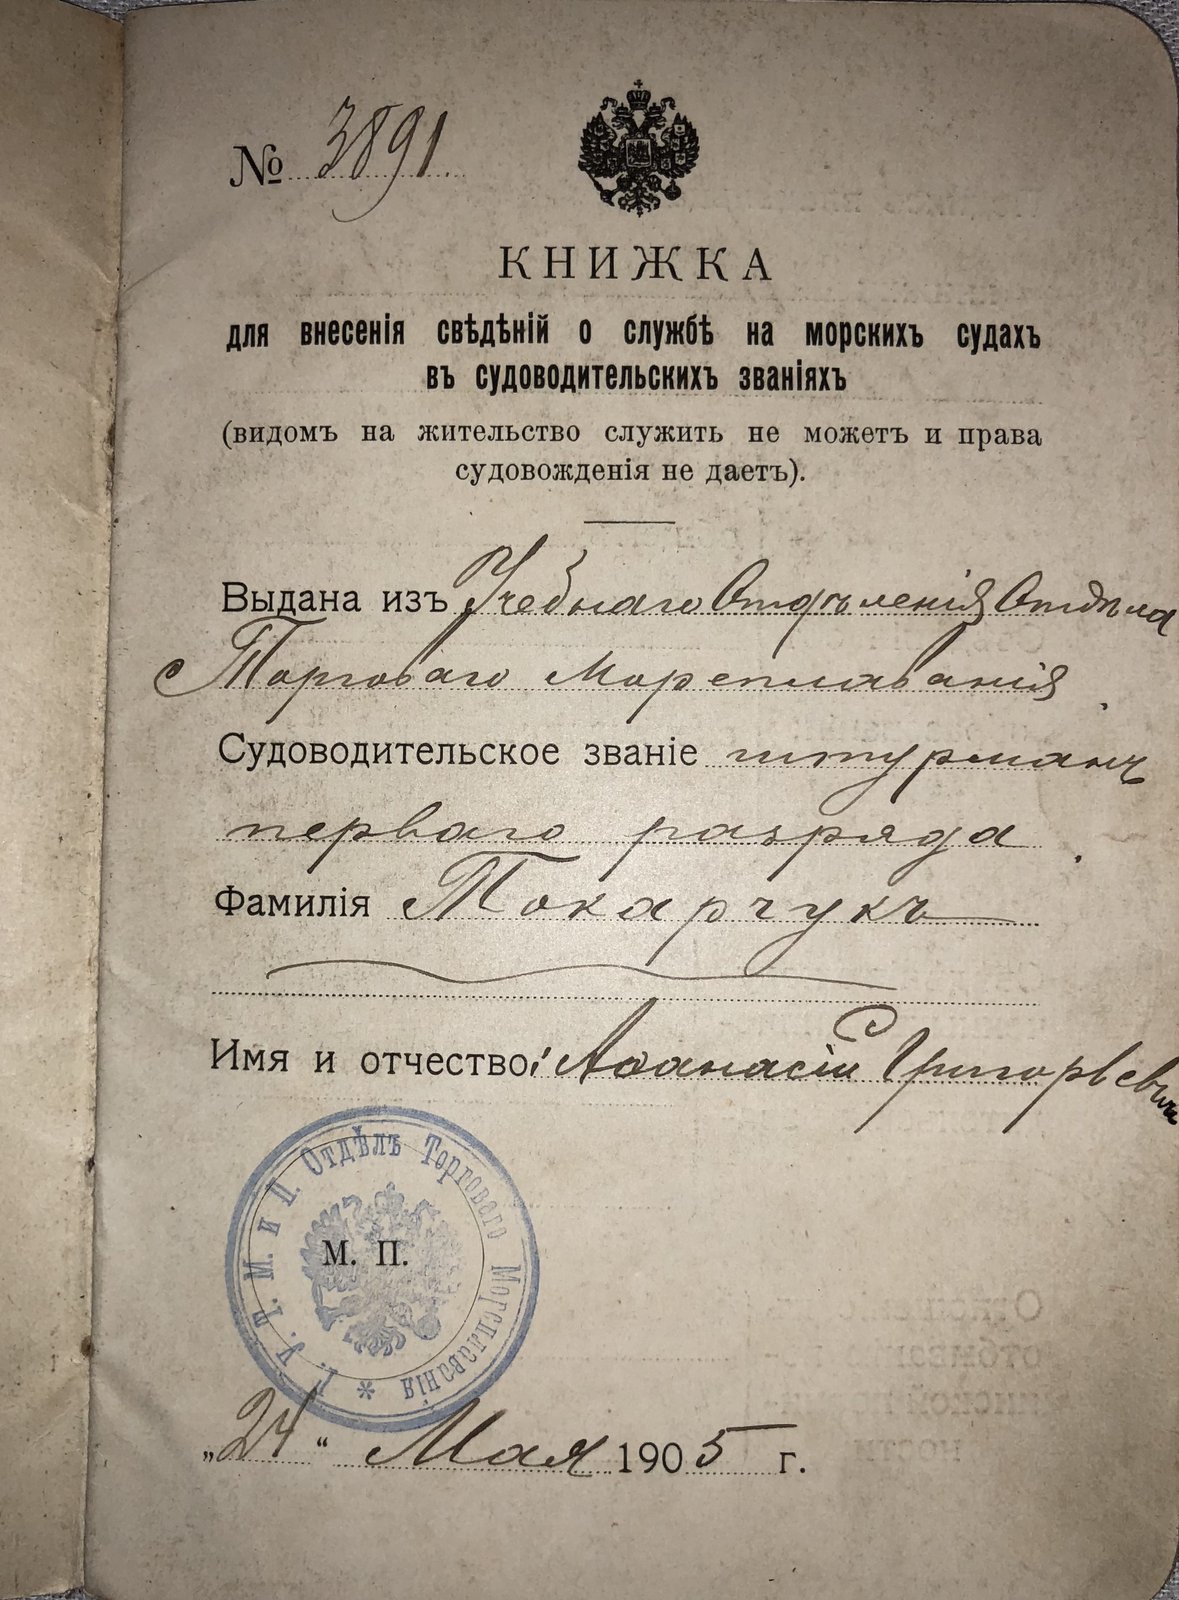 № 3891
КНИЖКА
для внесенія свѣдѣній о службѣ на морскихъ судахъ
въ судоводительскихъ званіяхъ
(видомъ на жительство служить не можетъ и права
судовожденія не даетъ).
Выдана изъ Учебнаго Отдѣленія Отдѣла
Торговаго Мореплаванія.
Судоводительское званіе штурманъ
перваго разряда.
Фамилія Токарчукъ
Имя и отчество: Аѳанасій Григорьевичъ
Г. У. Т. М. и П. Отдѣлъ Торговаго Мореплаванія *
М. П.
„24“ Мая 1905 г.